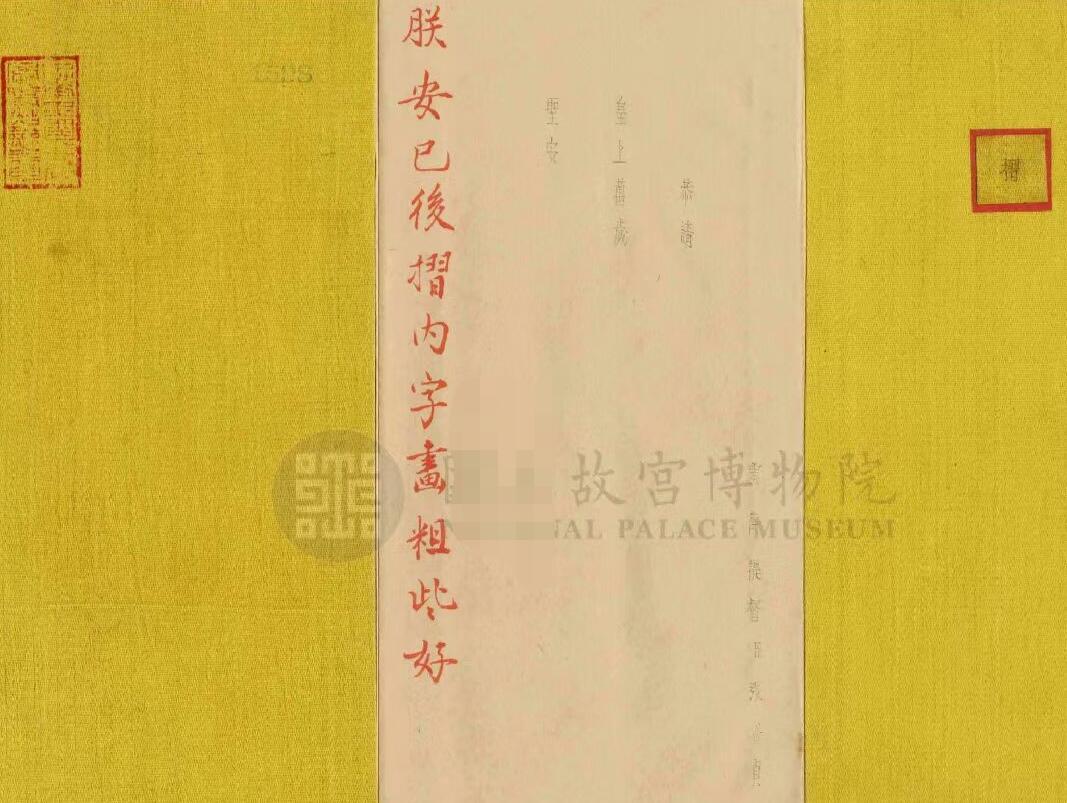 摺
提督臣張貞
恭請
皇上萬歲
聖安
朕安已後摺内字畫粗些好
故宮博物院
NAL PALACE MUSEUM